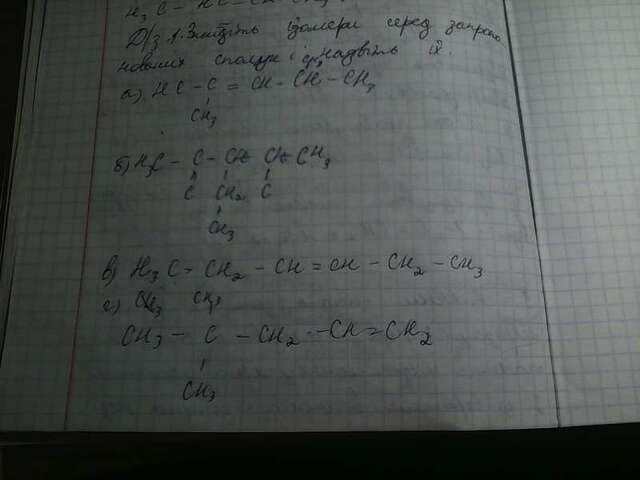 H₃C – HC – CH – CH₃
Д/з 1. Знайдіть ізомери серед запропо
нованих сполук і назвіть їх.
CH₃
а) HC – C = CH – CH – CH₃
CH₃
б) H₃C – C – CH – CH – CH₃
C CH₂ C
CH₃
в) H₃C – CH₂ – CH = CH – CH₂ – CH₃
г) CH₃ CH₃
CH₃ – C – CH₂ – CH = CH₂
CH₃